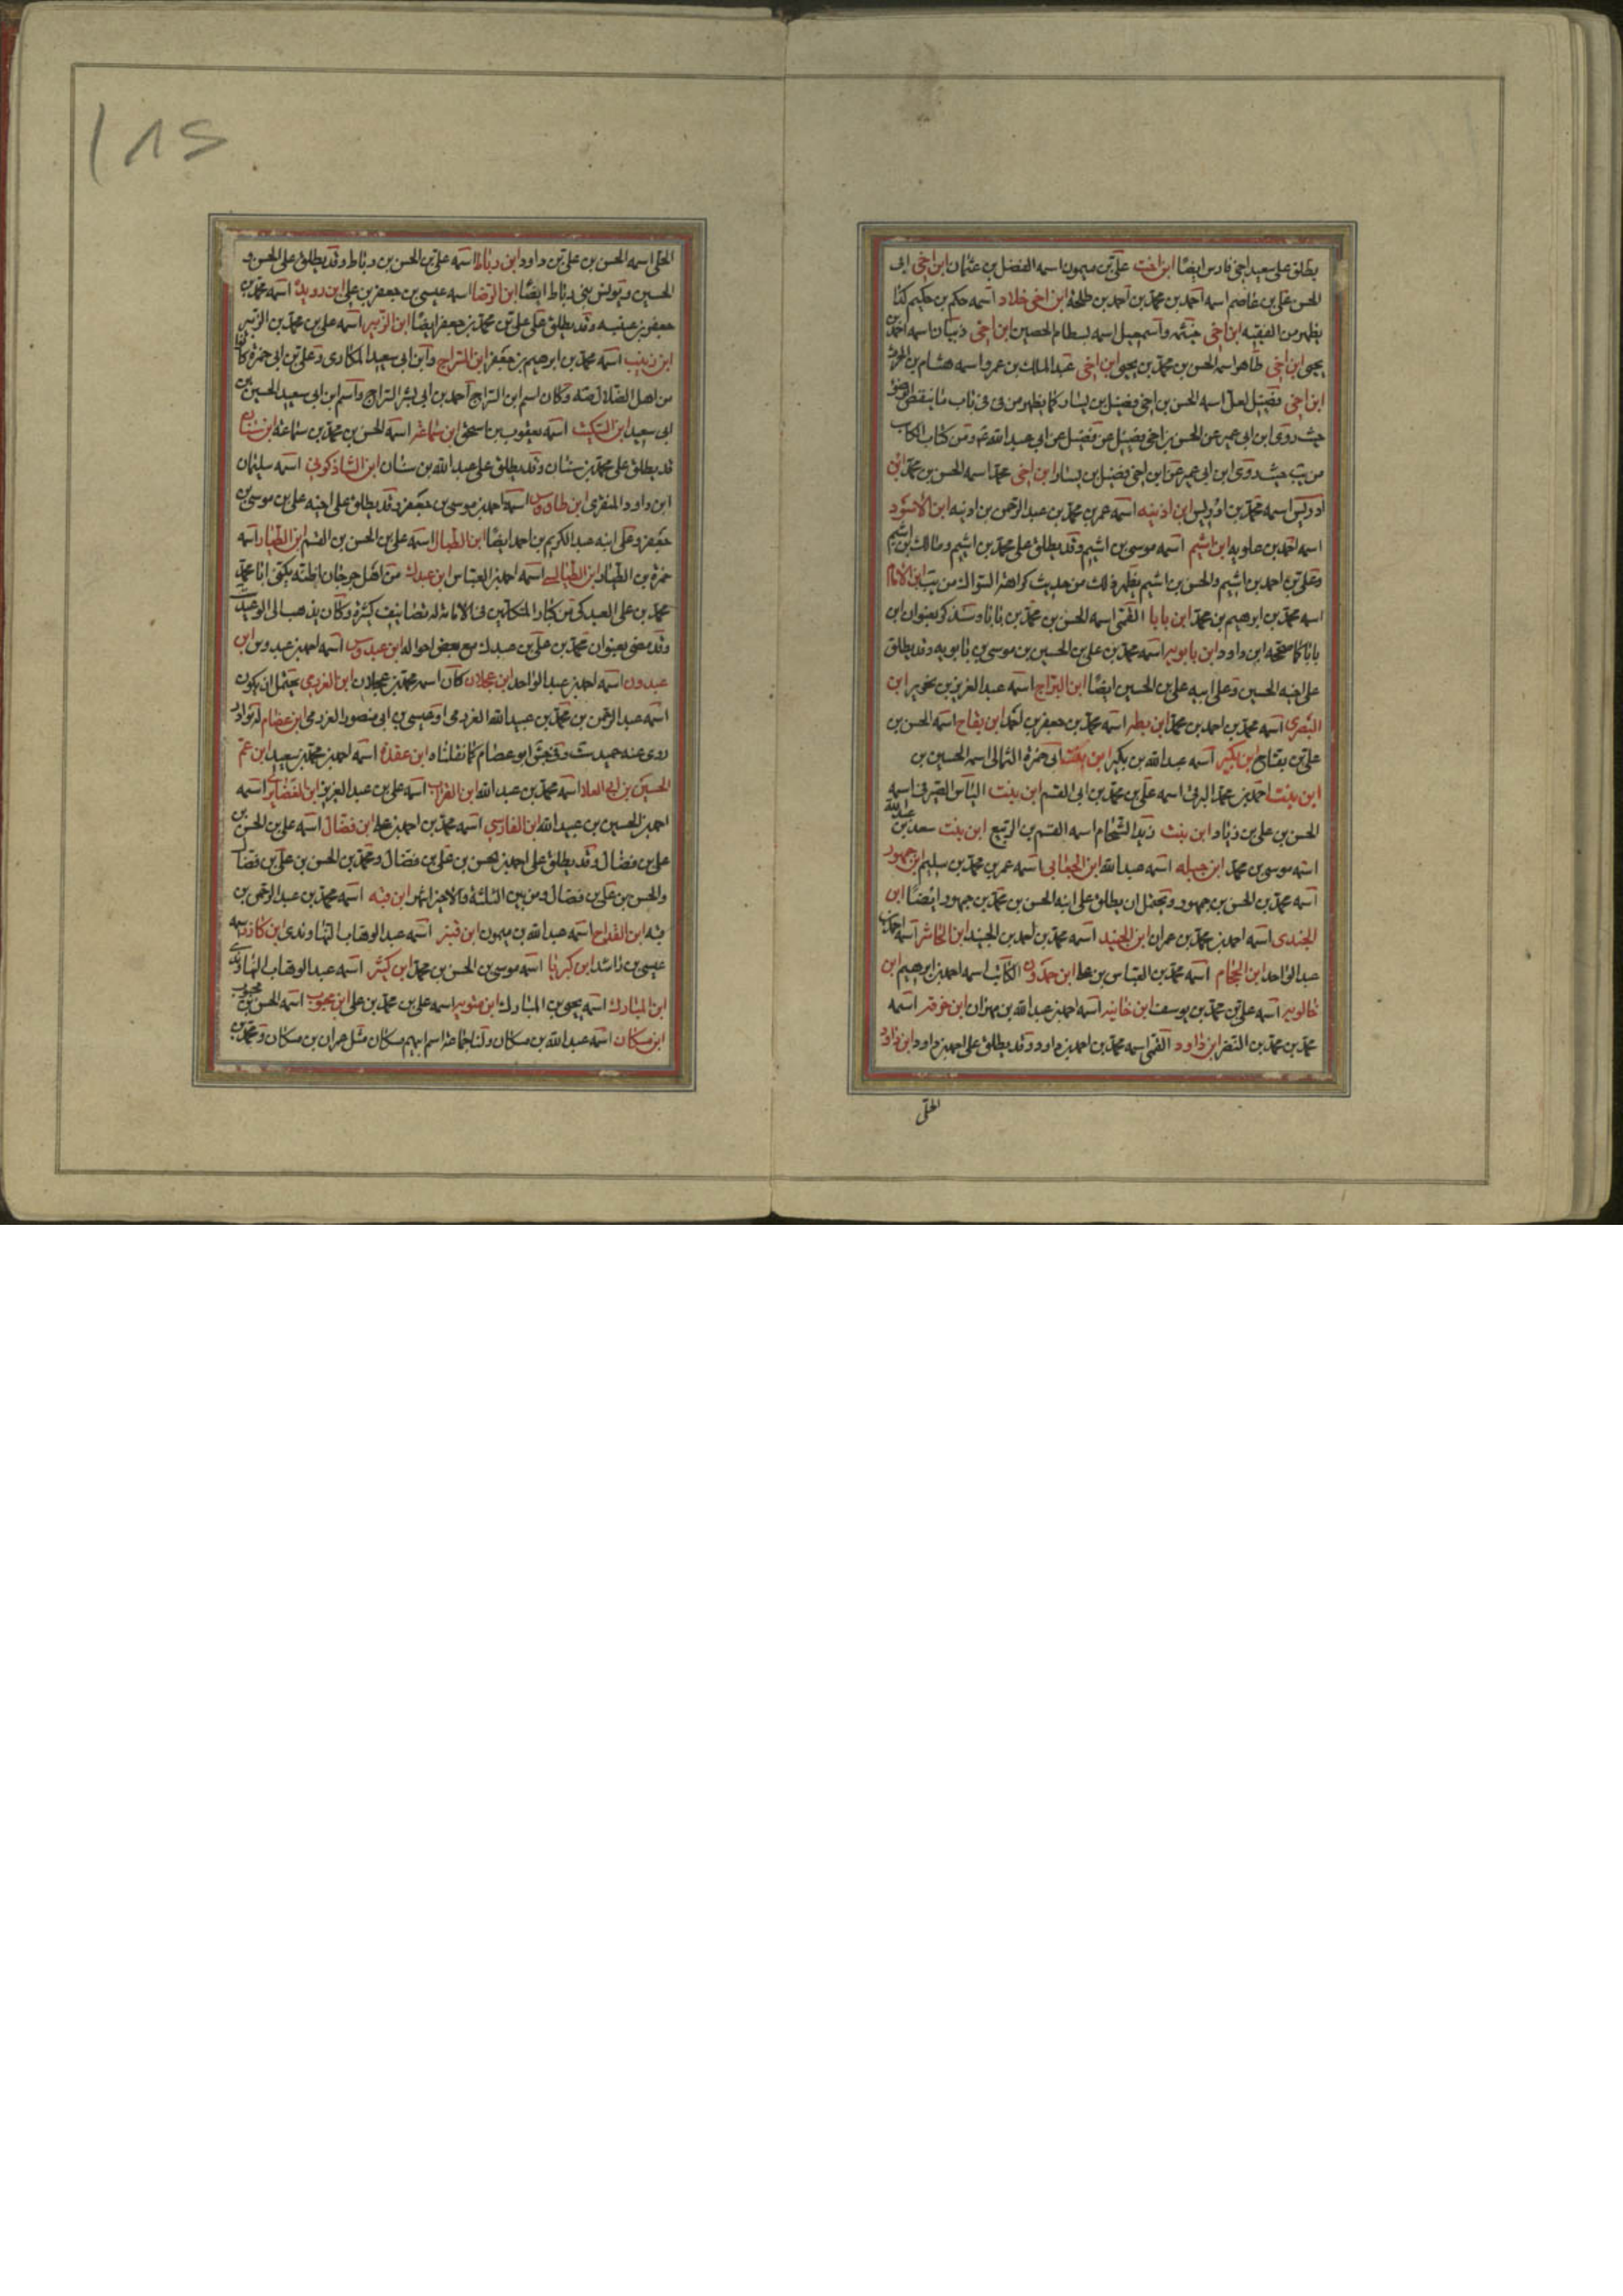 يطلق على سعيد اخى فارس ايضًا ابن اخت على بن ميمون اسمه الفضل بن عثمان ابن اخى ابى
الحسن على بن عاصم اسمه احمد بن محمد بن احمد بن طلحة ابن اخى خلاد اسمه حكم بن حكيم كما
يظهر من الفقيه ابن اخى خيثمه واسمعيل اسمه بسطام بن الحصين ابن اخى ذبيان اسمه احمد بن
يحيى ابن اخى طاهر اسمه الحسن بن محمد بن يحيى ابن اخى عبد الملك بن عمرو اسمه هشام بن الحرث
ابن اخى فضيل لعل اسمه الحسن بن اخى فضيل بن يسار كما يظهر من فى باب ما ينقض الوضوء
حيث روى ابن ابى عمير عن الحسن بن اخى فضيل عن فضيل عن ابى عبد الله ومن كتاب
من يب حيث روى ابن ابى عمير عن ابن اخى فضيل بن يسار ابن اخى اسمه الحسن بن محمد ابن
ادريس اسمه محمد بن ادريس ابن اذينه اسمه عمر بن محمد بن عبد الرحمن بن اذينه ابن الاسود
اسمه احمد بن علويه ابن اشيم اسمه موسى بن اشيم وقد يطلق على محمد بن اشيم ومالك بن اشيم
وعلى بن احمد بن اشيم والحسن بن اشيم يظهر ذلك من حديث كراهة السؤال من يب ابن الامام
اسمه محمد بن ابرهيم بن محمد ابن بابا القمى اسمه الحسن بن محمد بن بابا وسيذكر بعنوان ابن
بابا كما صححه ابن داود ابن بابويه اسمه محمد بن على بن الحسين بن موسى بن بابويه وقد يطلق
على اخيه الحسين وعلى ابيه على بن الحسين ايضًا ابن البراج اسمه عبد العزيز بن نحرير ابن
البصرى اسمه محمد بن احمد بن محمد ابن بطه اسمه محمد بن جعفر بن احمد ابن بقاح اسمه الحسن بن
على بن بقاح ابن بكير اسمه عبد الله بن بكير ابن بنت ابى حمزة الثمالى اسمه الحسين بن
ابن بنت احمد بن محمد البرقى اسمه على بن محمد بن ابى القسم ابن بنت الياس الصيرفى اسمه
الحسن بن على بن زياد ابن بنت زيد الشحام اسمه القسم بن الربيع ابن بنت سعد بن عبد الله
اسمه موسى بن محمد ابن جبله اسمه عبد الله ابن الجعابى اسمه عمر بن محمد بن سليم ابن جمهور
اسمه محمد بن الحسن بن جمهور ويحتمل ان يطلق على ابنه الحسن بن محمد بن جمهور ايضًا ابن
الجندى اسمه احمد بن محمد بن عمران ابن الجنيد اسمه محمد بن احمد بن الجنيد ابن الحاشر اسمه احمد بن
عبد الواحد ابن الحجام اسمه محمد بن العباس بن على ابن حمدون الكاتب اسمه احمد بن ابرهيم ابن
خالويه اسمه على بن محمد بن يوسف ابن خانبه اسمه احمد بن عبد الله بن مهران ابن اسمه
محمد بن محمد بن النضر ابن داود القمى اسمه محمد بن احمد بن داود وقد يطلق على احمد بن داود ابن داود
الحلى
١٨٤
الحلى اسمه الحسن بن على بن داود ابن رباط اسمه على بن الحسن بن رباط وقد يطلق على الحسن و
الحسين ويونس بنى رباط ايضًا ابن الرضا اسمه عيسى بن جعفر بن على ابن رويده اسمه محمد بن
جعفر بن عنبسه وقد يطلق على على بن محمد بن جعفر ايضًا ابن الزبير اسمه على بن محمد بن الزبير
ابن زينب اسمه محمد بن ابرهيم بن جعفر ابن السراج وابن ابى سعيد المكارى وعلى بن ابى حمزة كانوا
من اهل الضلال منه وكان اسم ابن السراج احمد بن ابى بشر السراج واسم ابن ابى سعيد الحسين بن
ابى سعيد ابن السكيت اسمه يعقوب بن اسحق ابن سماعه اسمه الحسن بن محمد بن سماعة ابن سنان
قد يطلق على محمد بن سنان وقد يطلق على عبد الله بن سنان ابن الشاذكونى اسمه سليمان
ابن داود المنقرى ابن طاووس اسمه احمد بن موسى بن جعفر وقد يطلق على اخيه على بن موسى بن
جعفر وعلى ابنه عبد الكريم بن احمد ايضًا ابن الطبال اسمه على بن الحسن بن القسم ابن الطيار اسمه
حمزة بن الطيار ابن الطيالسى اسمه احمد بن العباس ابن عبدك من اهل جرجان اظنه يكنى ابا محمد
محمد بن على العبدكى من كبار المتكلمين فى الامامة له تصانيف كثيرة وكان يذهب الى الوعيد
وقد مضى بعنوان محمد بن على بن عبدك مع بعض احواله ابن عبدوس اسمه احمد بن عبدوس ابن
عبدون اسمه احمد بن عبد الواحد ابن عجلان كان اسمه محمد بن عجلان ابن العزرمى يحتمل ان يكون
اسمه عبد الرحمن بن محمد بن عبيد الله العزرمى او عيسى بن ابى منصور العزرمى ابن عصام له نوادر
روى عنه حميد ست وفى جش ابو عصام كما نقلناه ابن عقدة اسمه احمد بن محمد بن سعيد ابن عم
الحسين بن ابى العلا اسمه محمد بن عبد الله ابن الغراب اسمه على بن عبد العزيز ابن الغضايرى اسمه
احمد بن الحسين بن عبيد الله ابن الفارسى اسمه محمد بن احمد بن على ابن فضال اسمه على بن الحسن بن
على بن فضال وقد يطلق على احمد بن حسن بن على بن فضال ومحمد بن الحسن بن على بن فضال
والحسن بن على بن فضال ومن بين الثلثة والاخير اشهر ابن قبه اسمه محمد بن عبد الرحمن بن
قبه ابن القداح اسمه عبد الله بن ميمون ابن قنبر اسمه عبد الوهاب النهاوندى ابن اسمه
عيسى بن راشد ابن كبريا اسمه موسى بن الحسن بن محمد ابن كثير اسمه عبد الوهاب النهاوندى
ابن المبارك اسمه يحيى بن المبارك ابن متويه اسمه على بن محمد بن على ابن محبوب اسمه الحسن بن محبوب
ابن مسكان اسمه عبد الله بن مسكان ولنا جماعة اسم ابيهم مسكان مثل عمران بن مسكان ومحمد بن